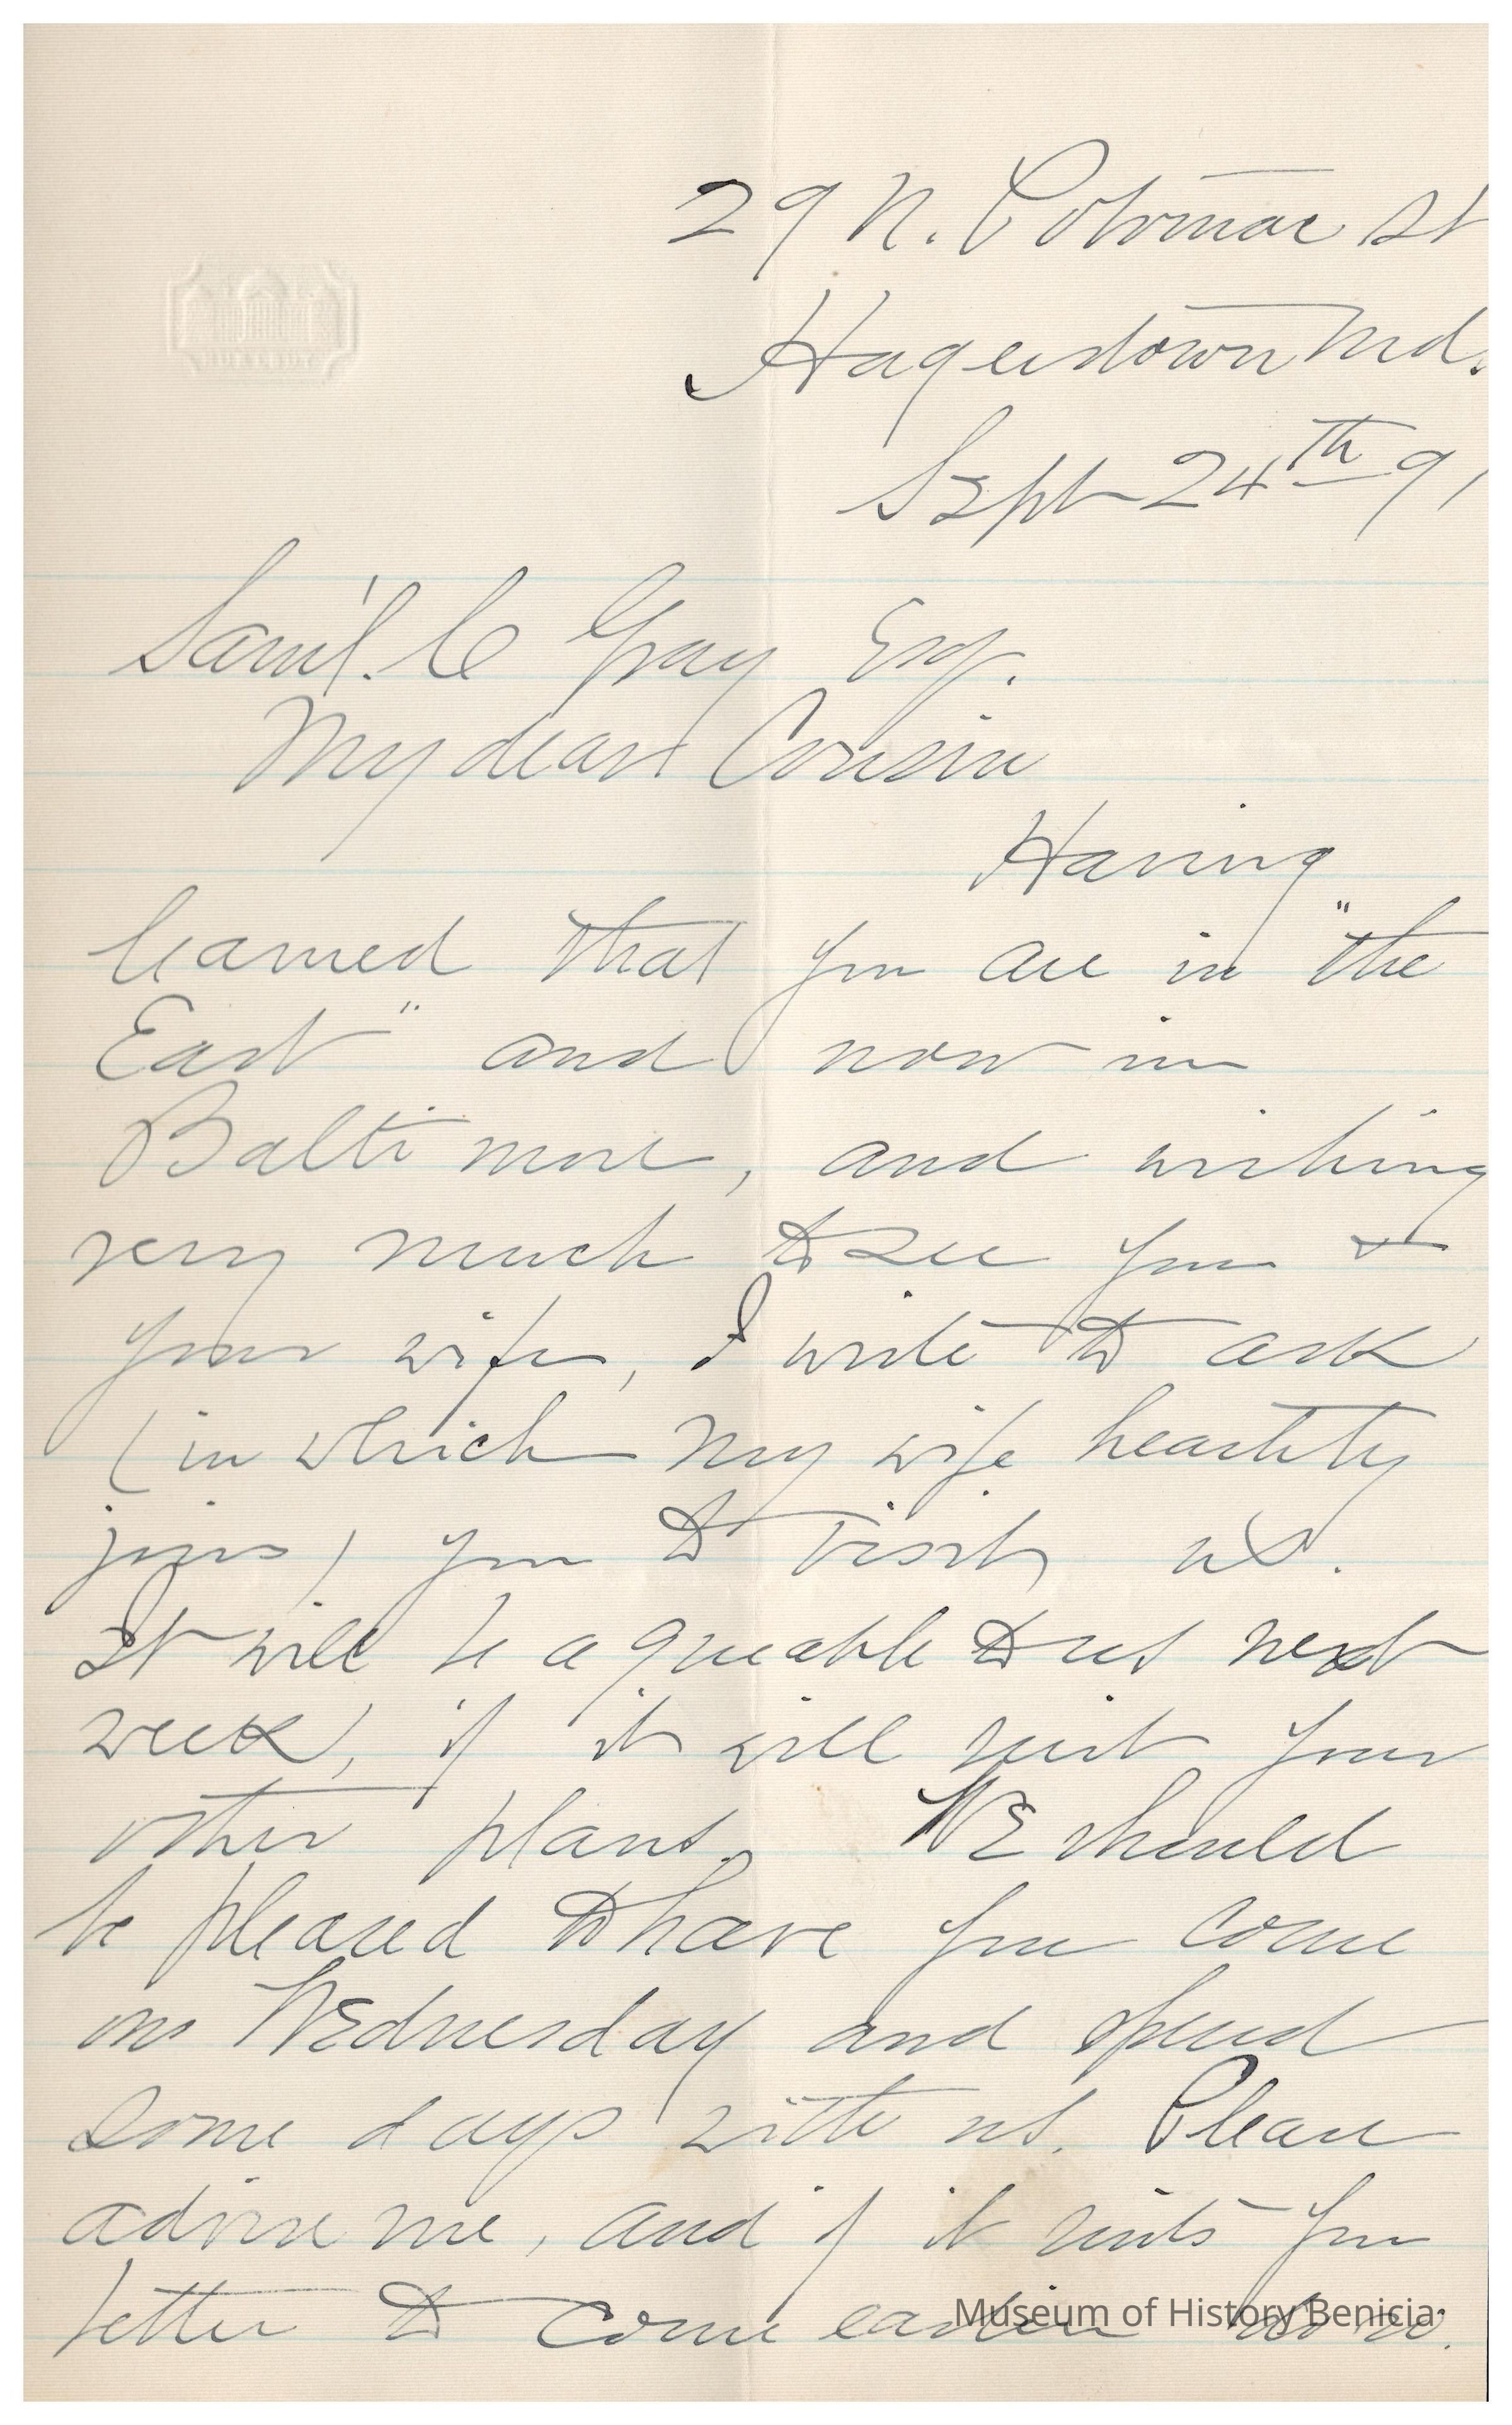 29 N. Potomac St
Hagerstown Md.
Sept 24th 91
Sam'l. C Gray Esq.
My dear Cousin
Having
learned that you are in "the
East" and now in
Baltimore, and wishing
very much to see you &
your wife, I write to ask
(in which my wife heartily
joins) you to visit us.
It will be agreeable to us next
week, if it will suit your
other plans. We should
be pleased to have you come
on Wednesday and spend
some days with us. Please
advise me, and if it suits you
better to come earlier
Museum of History Benicia